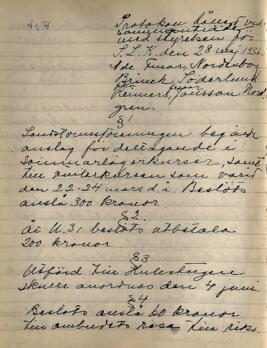 Protokoll hållet vid
sammanträde
med styrelsen för
S.L.K. den 28 maj 1936.
Nordenborg
Brinck, Söderlund
Reimers, fruar Jonsson Nord
gren.
§ 1
Landstormsföreningen begärde
anslag för deltagande i
Sommarlägerkurser, samt
till vinterkursen som varit
den 22-24 mars d.å. Beslöts
anslå 300 kronor
§ 2.
Åt U.31 beslöts utbetala
200 kronor
§ 3
Utfärd till
skulle anordnas den 4 juni.
§ 4
Beslöts anslå 60 kronor
till ombudets resa till riks.